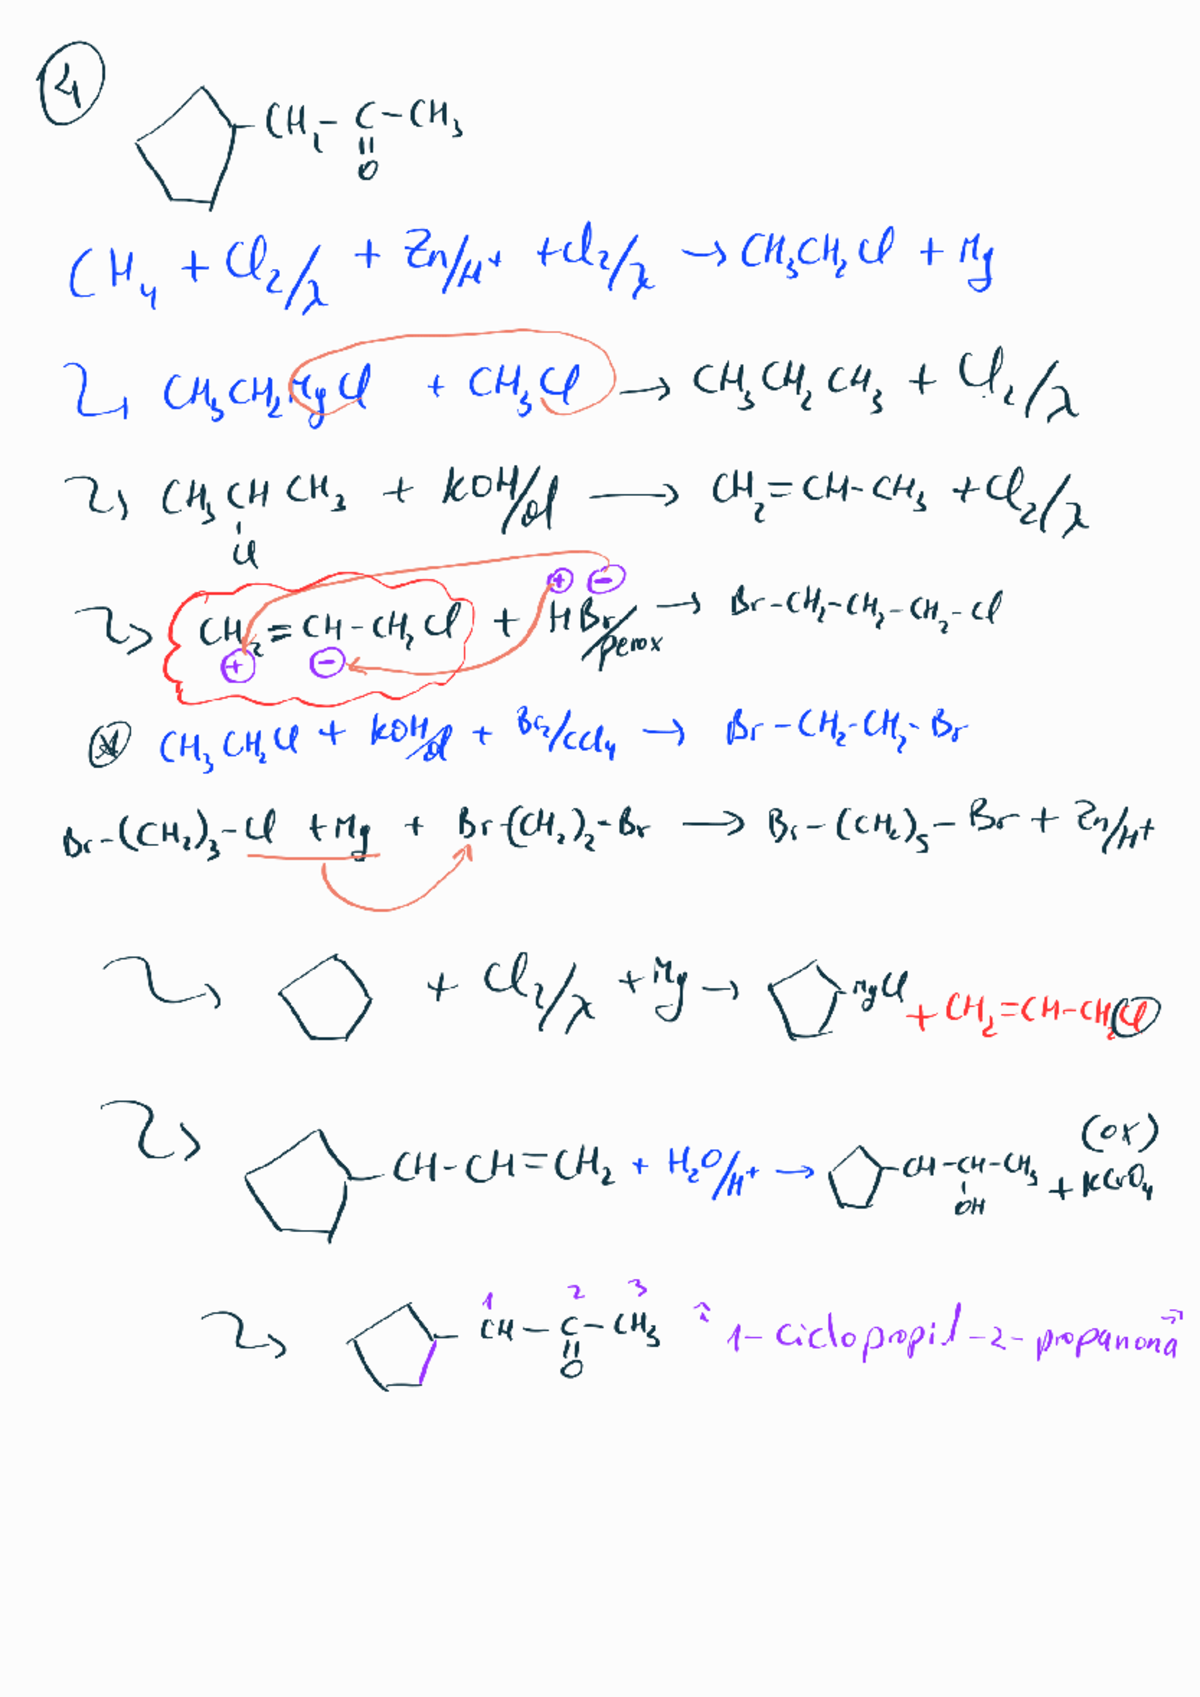 4
CH₂ - C - CH₃
=
O
CH₄ + Cl₂/λ + Zn/H⁺ + Cl₂/λ → CH₃CH₂Cl + Mg
CH₃CH₂MgCl + CH₃Cl → CH₃CH₂CH₃ + Cl₂/λ
CH₃CHCH₃ + KOH/ol → CH₂=CH-CH₃ + Cl₂/λ
Cl
⊕ ⊖
CH₂=CH-CH₂Cl + HBr/perox → Br-CH₂-CH₂-CH₂-Cl
⊕ ⊖
* CH₃CH₂Cl + KOH/ol + Br₂/CCl₄ → Br-CH₂-CH₂-Br
Br-(CH₂)₃-Cl + Mg + Br-(CH₂)₂-Br → Br-(CH₂)₅-Br + Zn/H⁺
+ Cl₂/λ + Mg → MgCl + CH₂=CH-CH₂Cl
(ox)
CH-CH=CH₂ + H₂O/H⁺ → CH-CH-CH₃ + KCrO₄
OH
1 2 3
CH-C-CH₃ 1-ciclopropil-2-propanona
=
O